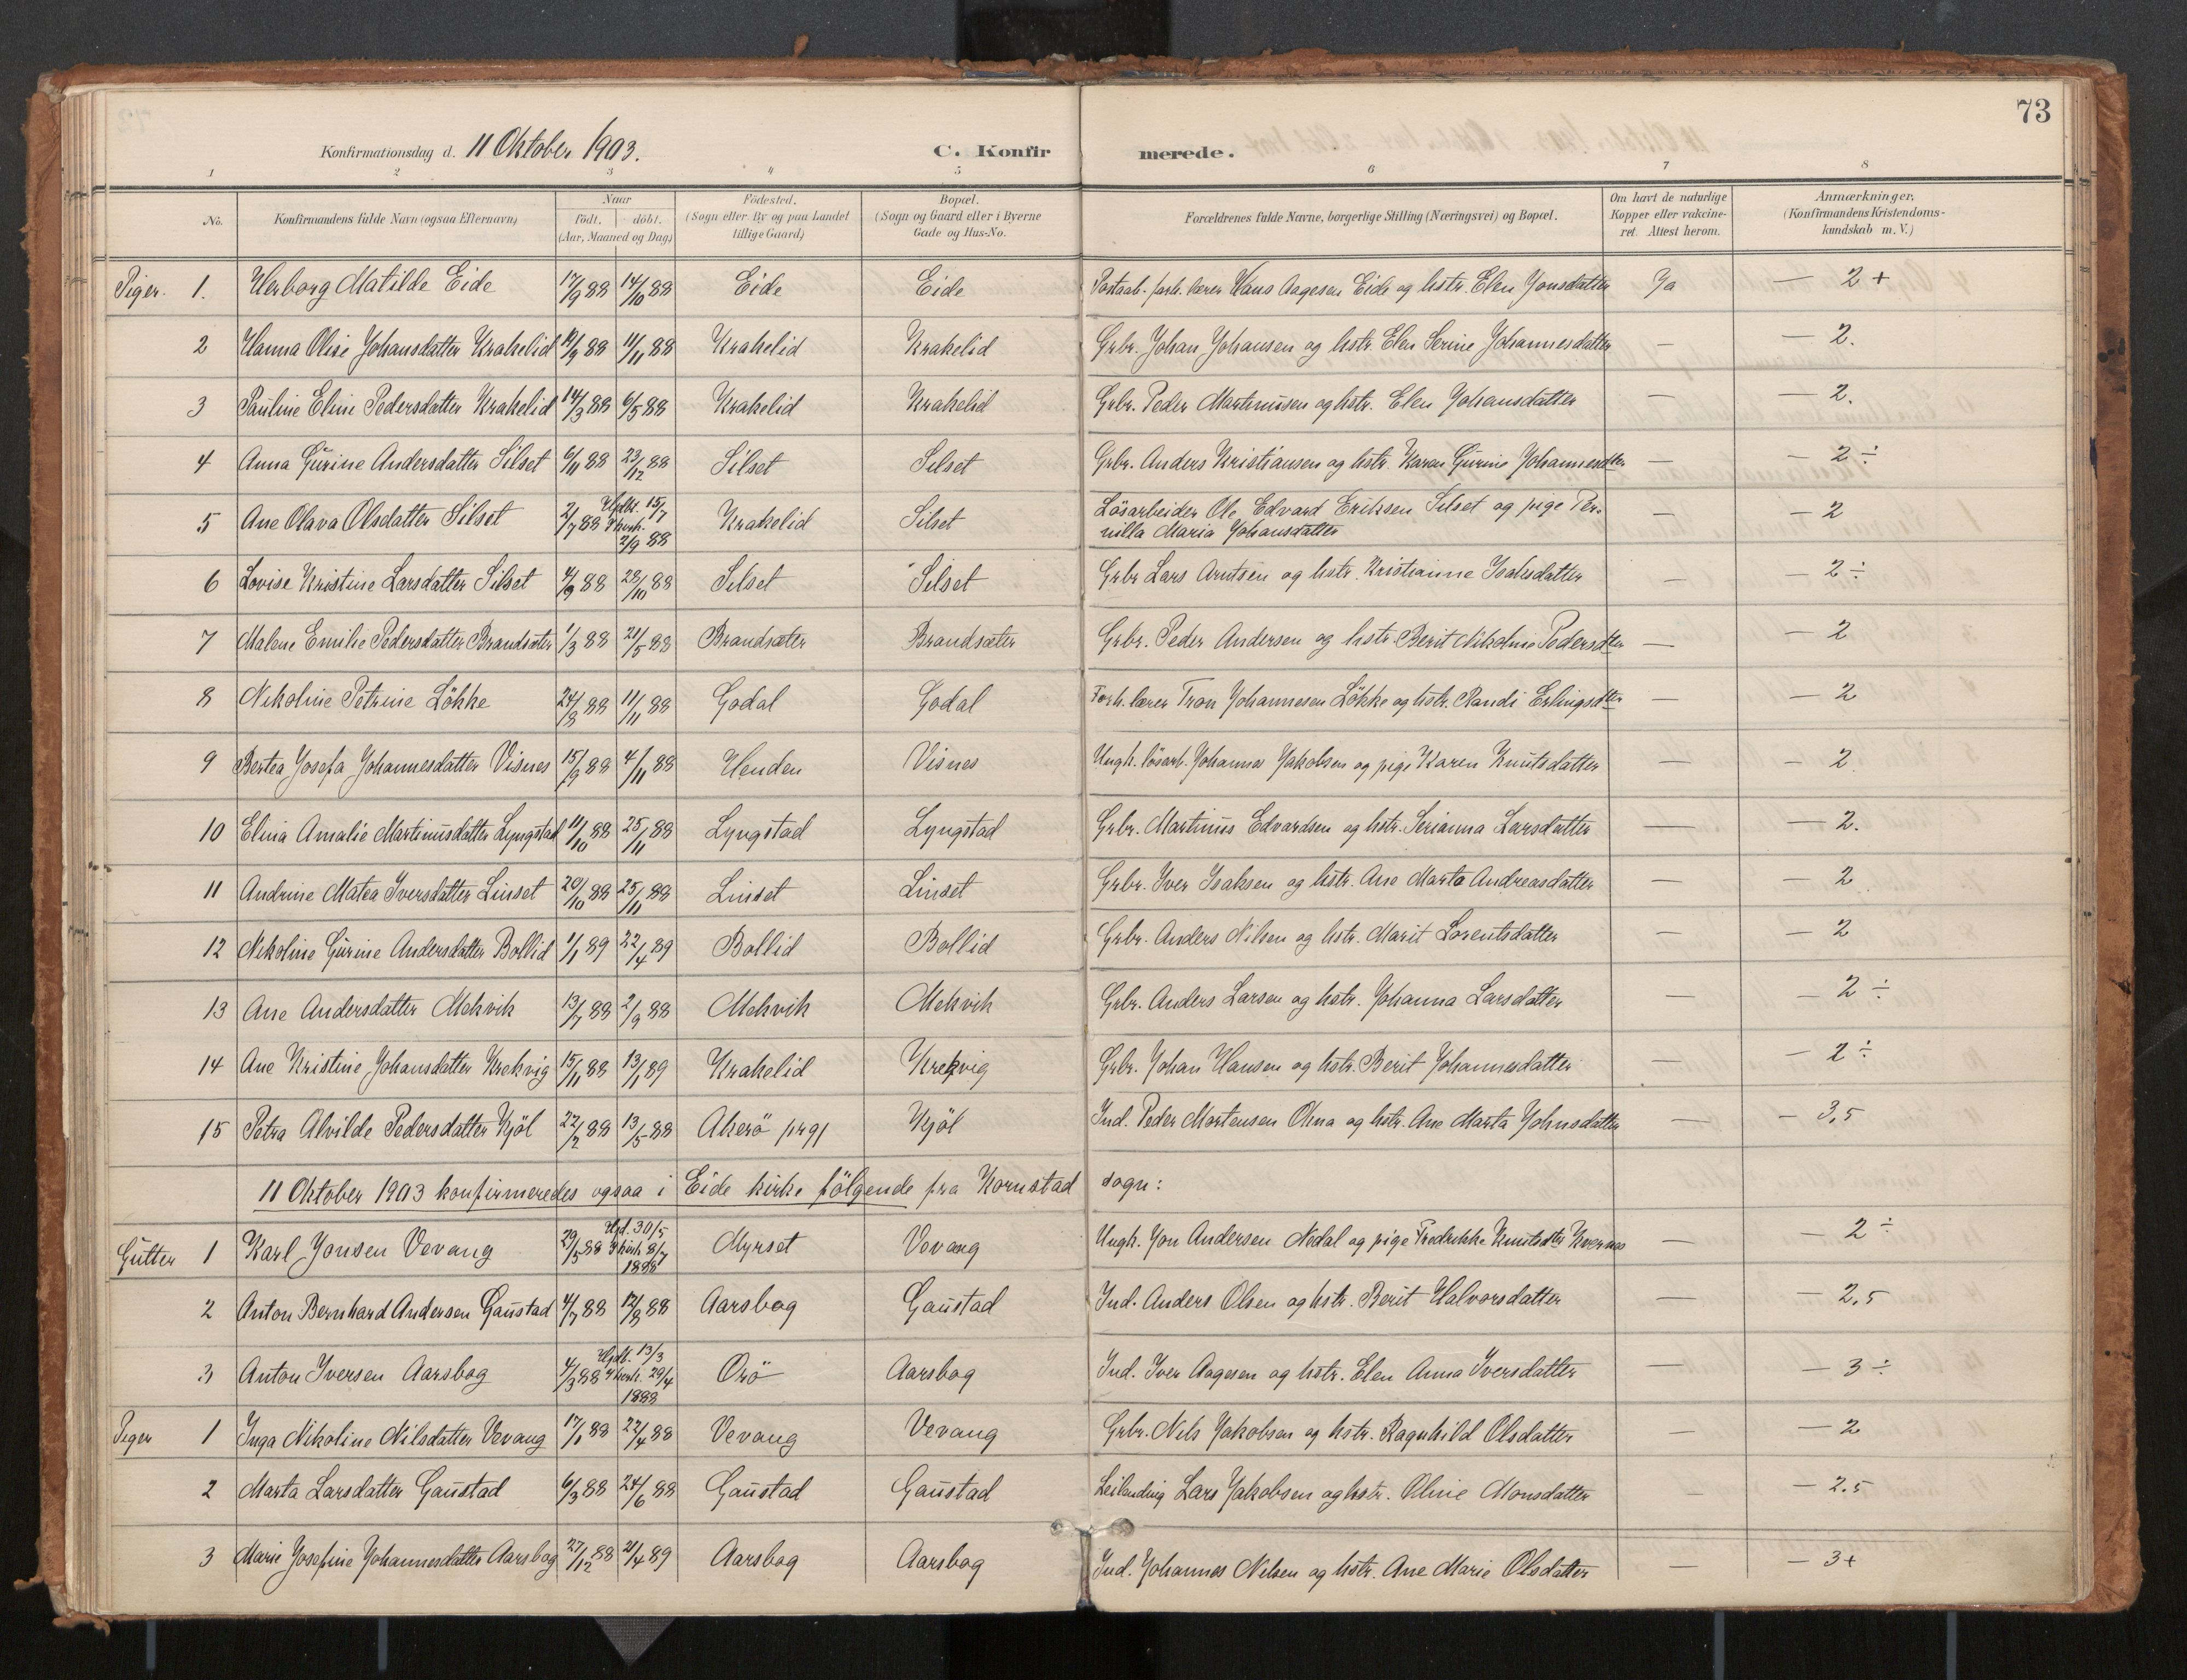 73
Konfirmationsdag d. 11 Oktober 1903. C. Konfirmerede.
1 2 3 4 5 6 7 8
No. Konfirmandens fulde Navn (ogsaa Efternavn) Naar født. døbt. (Aar, Maaned og Dag) Fødested. (Sogn eller By og paa Landet tillige Gaard) Bopæl. (Sogn og Gaard eller i Byerne Gade og Hus-No. Forældrenes fulde Navne, borgerlige Stilling (Næringsvei) og Bopæl. Om havt de naturlige Kopper eller vakcineret. Attest herom. Anmærkninger. (Konfirmandens Kristendomskundskab m. V.)
Piger. 1. Herborg Matilde Eide 17/9 88 14/10 88 Eide Eide Postaab. forh. lærer Hans Aagesen Eide og hstr. Elen Jonsdatter Ja — 2+
2 Hanna Olise Johansdatter Krakelid 19/9 88 11/11 88 Krakelid Krakelid Grbr. Johan Johansen og hstr. Elen Serine Johannesdatter — — 2.
3 Pauline Eline Pedersdatter Krakelid 14/3 88 6/5 88 Krakelid Krakelid Grbr. Peder Martinusen og hstr. Elen Johansdatter — — 2.
4 Anna Gurine Andersdatter Silset 6/11 88 23/12 88 Silset Silset Grbr. Anders Kristiansen og hstr. Karen Gurine Johannesdtter — — 2÷
5 Ane Olava Olsdatter Silset 2/7 88 Hjdbt. 15/7 I kirk. 2/9 88 Krakelid Silset Løsarbeider Ole Edvard Eriksen Silset og pige Per-
nilla Maria Johansdatter — — 2
6 Lovise Kristine Larsdatter Silset 4/9 88 28/10 88 Silset Silset Grbr Lars Arntsen og hstr. Kristianne Isaksdatter — — 2÷
7 Malene Emilie Pedersdatter Brandsæter 1/3 88 21/5 88 Brandsæter Brandsæter Grbr. Peder Andersen og hstr. Berit Nikoline Pedersdtter — — 2
8 Nikoline Petrine Løkke 24/8 88 11/11 88 Godal Godal Forh. lærer Tron Johannesen Løkke og hstr. Randi Erlingsdtter — — 2
9 Bertea Josefa Johannesdatter Visnes 15/9 88 4/11 88 Henden Visnes Ungk. løsarb. Johannes Jakobsen og pige Karen Knutsdatter — — 2
10 Elina Amalie Martinusdatter Lyngstad 11/10 88 25/11 88 Lyngstad Lyngstad Grbr. Martinus Edvardsen og hstr. Serianna Larsdatter — — 2.
11 Andrine Matea Iversdatter Linset 20/10 88 25/11 88 Linset Linset Grbr. Iver Isaksen og hstr. Ane Marta Andreasdatter — — 2
12 Nikoline Gurine Andersdatter Bollid 1/1 89 22/4 89 Bollid Bollid Grbr. Anders Nilsen og hstr. Marit Lorentsdatter — — 2
13 Ane Andersdatter Mekvik 13/7 88 2/9 88 Mekvik Mekvik Grbr. Anders Larsen og hstr. Johanna Larsdatter — — 2÷
14 Ane Kristine Johansdatter Krekvig 15/11 88 13/1 89 Krakelid Krekvig Grbr. Johan Hansen og hstr. Berit Johannesdatter — — 2÷
15 Petra Alvilde Pedersdatter Kjøl 22/2 88 13/5 88 Akerø prgj Kjøl Ind. Peder Mortensen Okna og hstr. Ane Marta Johnsdatter — — 3,5
11 Oktober 1903 konfirmeredes ogsaa i Eide kirke følgende fra Kornstad sogn:
Gutter 1 Karl Jonsen Vevang 29/5 88 Hjd. 30/5 I kirk. 8/7 1888 Myrset Vevang Ungk. Jon Andersen Nedal og pige Fredrikke Knutsdtr Kvernes — — 2÷
2 Anton Bernhard Andersen Gaustad 4/7 88 12/8 88 Aarsbog Gaustad Ind. Anders Olsen og hstr. Berit Halvorsdatter — — 2,5
3 Anton Iversen Aarsbog 4/3 88 Hjdt. 13/3 I kirk. 29/4 1888 Orø Aarsbog Ind. Iver Aagesen og hstr. Elen Anna Iversdatter — — 3÷
Piger 1 Inga Nikoline Nilsdatter Vevang 17/1 88 22/4 88 Vevang Vevang Grbr. Nils Jakobsen og hstr. Ragnhild Olsdatter — — 2
2 Marta Larsdatter Gaustad 6/3 88 24/6 88 Gaustad Gaustad Leilænding Lars Jakobsen og hstr. Oline Monsdatter — — 2.5
3 Marie Josefine Johannesdatter Aarsbog 27/12 88 21/4 89 Aarsbog Aarsbog Ind. Johannes Nilsen og hstr. Ane Marie Olsdatter — — 3+